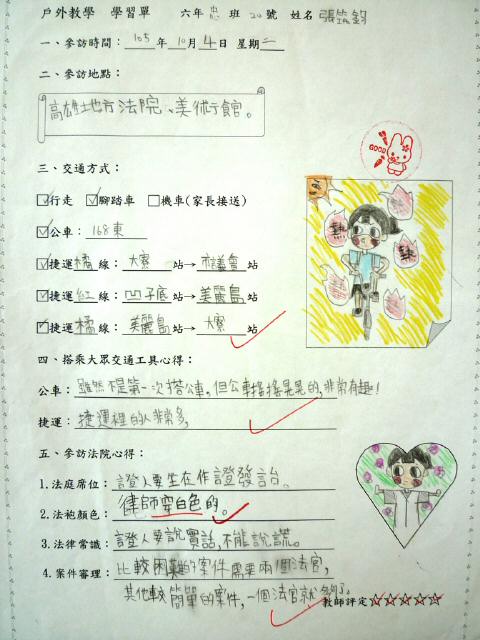 戶外教學 學習單 六年忠班20號 姓名張筑鈞
一、參訪時間：105年10月4日 星期二
二、參訪地點：
高雄地方法院、美術館。
三、交通方式：
行走 腳踏車 機車(家長接送)
公車：168東
捷運橘線：大寮站→市議會站
捷運紅線：凹子底站→美麗島站
捷運橘線：美麗島站→大寮站
GOOD
熱
熱
四、搭乘大眾交通工具心得：
公車：雖然不是第一次搭公車，但公車搖搖晃晃的，非常有趣！
捷運：捷運裡的人非常多，
五、參訪法院心得：
1.法庭席位：證人要坐在作證發言台。
2.法袍顏色：律師穿白色的。
3.法律常識：證人要說實話，不能說謊。
4.案件審理：比較困難的案件需要兩個法官，
其他較簡單的案件，一個法官就夠了。
教師評定☆☆☆☆☆